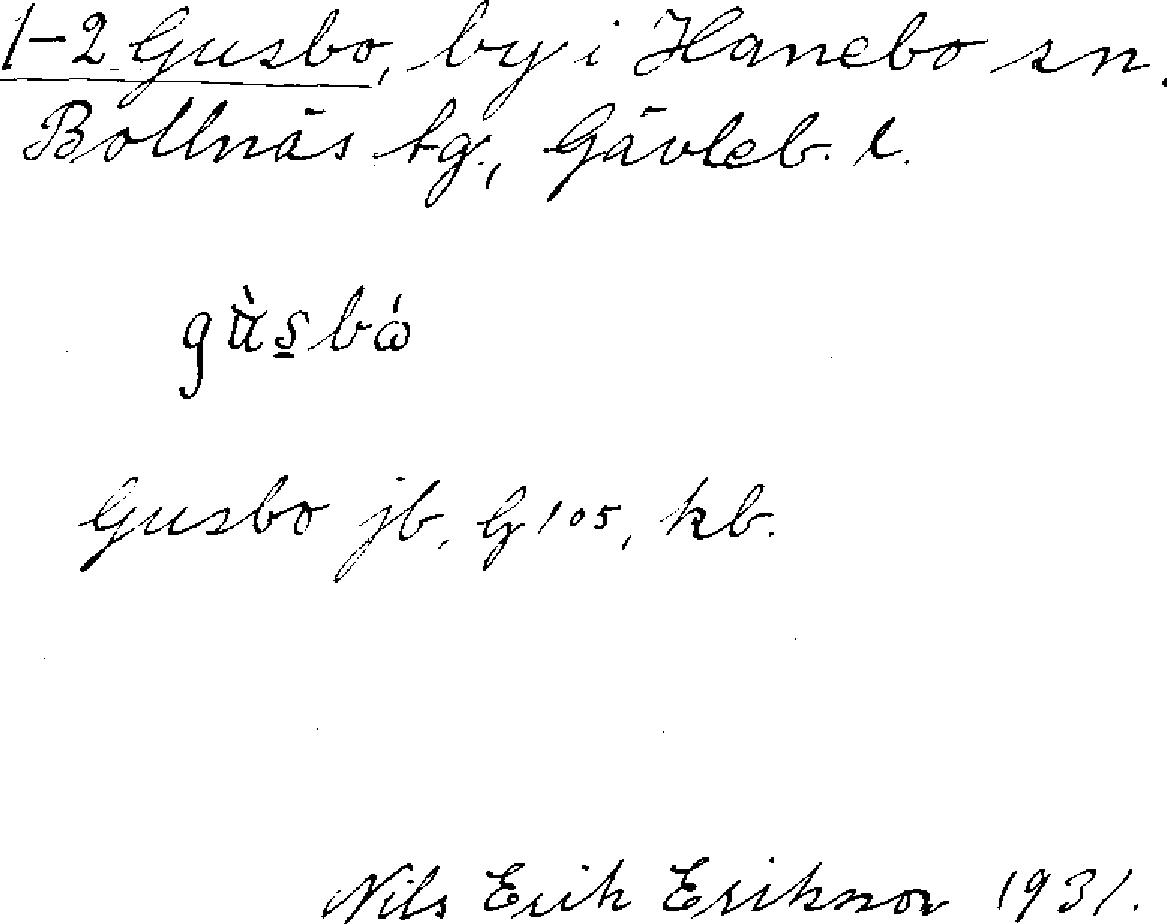 1-2 Gusbo, by i Hanebo sn.
Bollnäs tg., Gävleb. l.
gù̈s̲bώ
Gusbo jb, G 105, kb.
Nils Erik Erikson 1931.